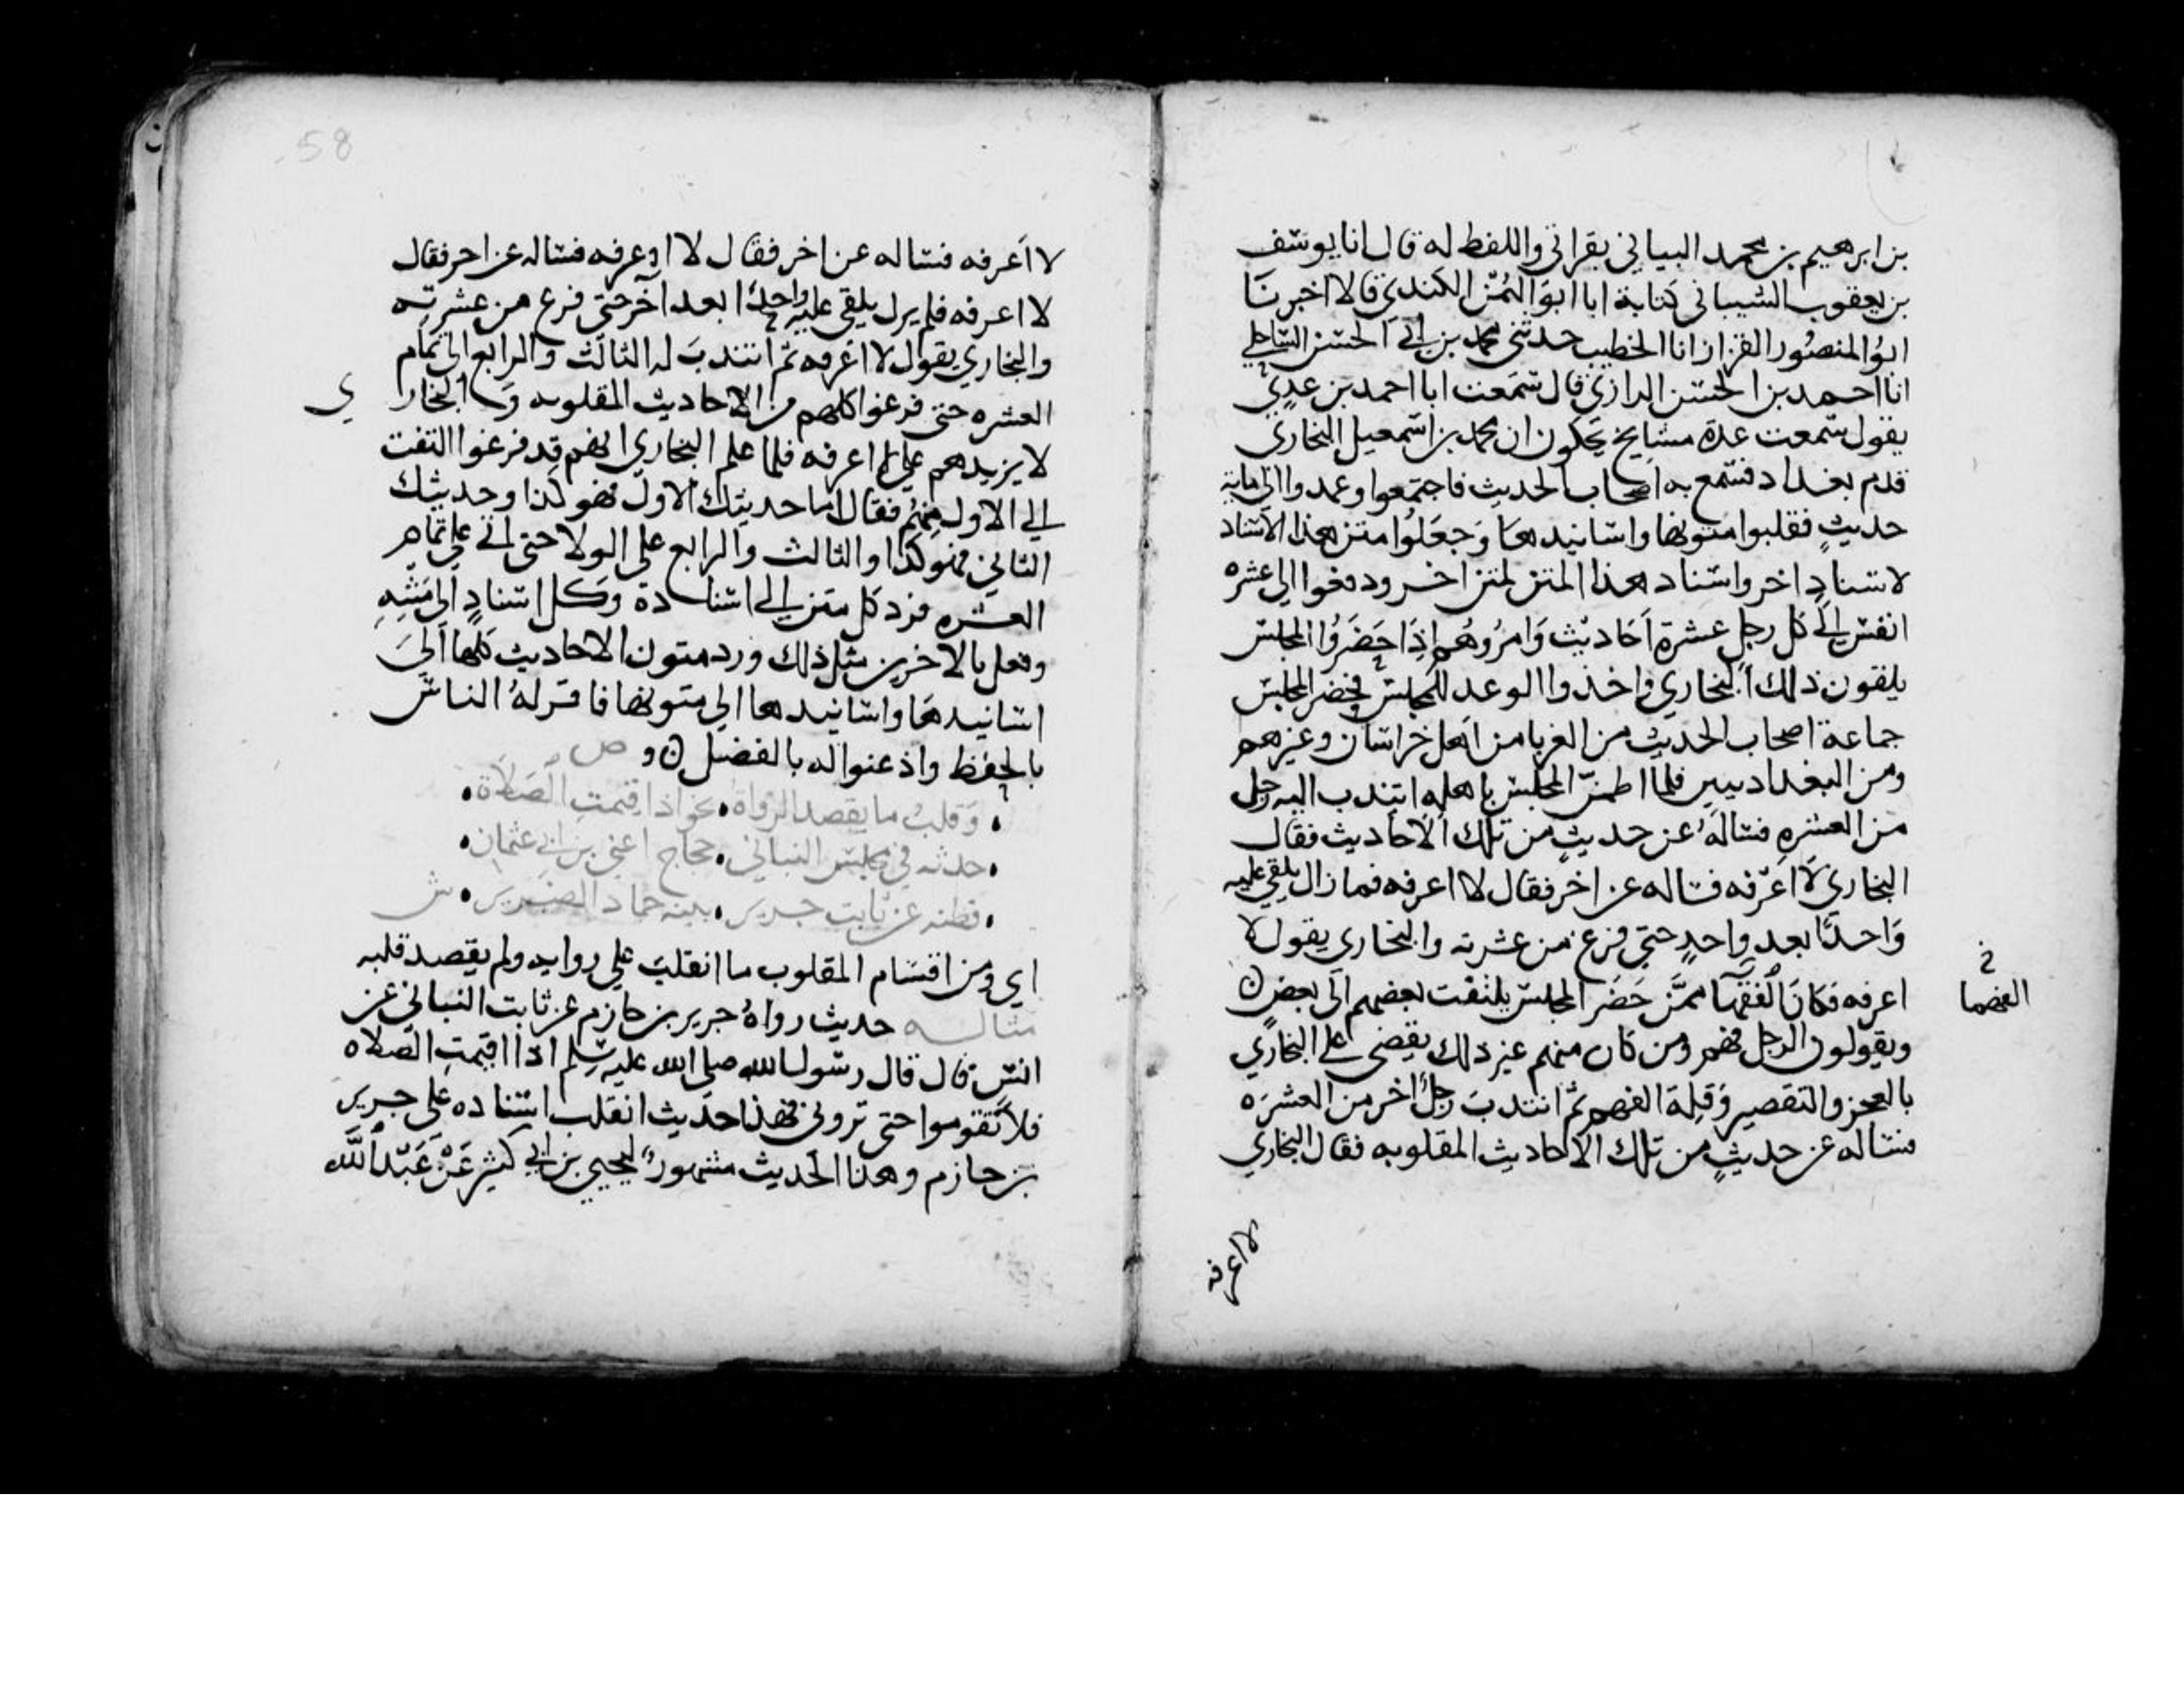 بن ابرهيم بن محمد البياني بقراتي واللفظ له قال انا يوسف
بن يعقوب الشيباني كتابة ابا ابو اليُمْن الكندي قالا اخبرنا
ابوُ المنصُور القزاز انا الخطيب حدثني محمد بن ابي الحسن الساحلي
انا احمد بن الحسن الرازي قال سَمعت ابا احمد بن عدي
يقول سَمعت عدة مشايخ يحكون ان محمد بن اسمعيل البخاري
قدم بغداد فسَمع به اصحاب الحديث فاجتمعوا وعمدوا الي ماية
حديثٍ فقلبوا متونها واسانيدها وَجعَلوُا متن هذا الاسناد
لاسنادٍ اخر واسناد هذا المتن لمتن اخر ودفعوا الي عشره
انفس الي كل رجلٍ عشرةِ اَحاديث وَامرُوهُم اِذَا حَضَرُوُا المجلس
يلقون ذلك البخاري واخذوا الوعد للمجلس فحضر المجلس
جماعة اصحاب الحديث من الغربا من اَهل خراسَان وغيرهم
ومن البغداديين فلما اطمنّ المجلس باهله انتدب اليه رجل
من العشره فسَاَلهُ عن حديثٍ من تلك الاحاديث فقال
البخاري لَا اعرّفه فساله عن اخر فقال لا اعرفه فما زال يلقي عليه
وَاحدًا بعد واحدٍ حتي فرغ من عشرته والبخاري يقول لا
اعرفه فكانَ الفقهَا ممَّن حَضَر المجلس يلتفت بعضهم الَى بعضٍ ن
ويقولون الرجل فهم ومن كان منهم غير ذلك يقضي علي البخاري
بالعجز والتقصير وَقلة الفهم ثمّ انتدبَ رَجلٌ اخر من العشرَه
فساله عن حديثٍ من تلك الاحاديث المقلوبه فقال البخاري
لا اعرفه
لا اَعرفه فساله عن اخر فقال لا اعرفه فساله عن اخر فقال
لا اعرفه فلم يزل يلقي عليه واحدًا بعد آخر حتّي فرغ من عشرته
والبخاري يقول لا اعرفه ثم انتدبَ له الثالث والرابع الي تمام
العشره حتي فرغوا كلهم من الاحاديث المقلوبه وَ البخاري
لا يزيدهم علي لا اعرفه فلما علم البخاري انهم قد فرغوا التفت
الي الاول منهم فقال اما حديثك الاول فهو كذا وحديثك
الثاني فهو كذا والثالث والرابع علي الولا حتي اتي علي تمام
العشره فرد كل متن الي اسناده وَكل اسنادٍ الي مَتنِهِ
وفعل بالاخرين مثل ذلك ورد متون الاحاديث كلها اَليَ
اسانيدهَا واسانيدها الي متونها فاقر لهُ الناسُ
بالحفظ واذعنوا له بالفضل ن و ص
• وَقلبُ ما يقصد الرُوَاة • نحو اذا اقيمتِ الصَلَاة •
• حدثه في مجلس البناني • حجاج اعني بن ابي عثمان •
• فظنه عن ثابت جرير • بينه حماد الضرير • ش
اي ومن اقسَام المقلوب ما انقلبَ علي راويه ولم يقصد قلبه
مثاله حديث رواهُ جرير بن حازم عن ثابت البناني عن
انس قال قال رسول الله صلي الله عليه وسلم اذا اقيمتِ الصلاه
فلا تَقوموا حتي تروني فهذا حَديث انقلب اسناده علي جرير
بن حازم وهذا الحَديث مشهورٌ ليحيي بن ابي كثير عَنْ عَبْد الله